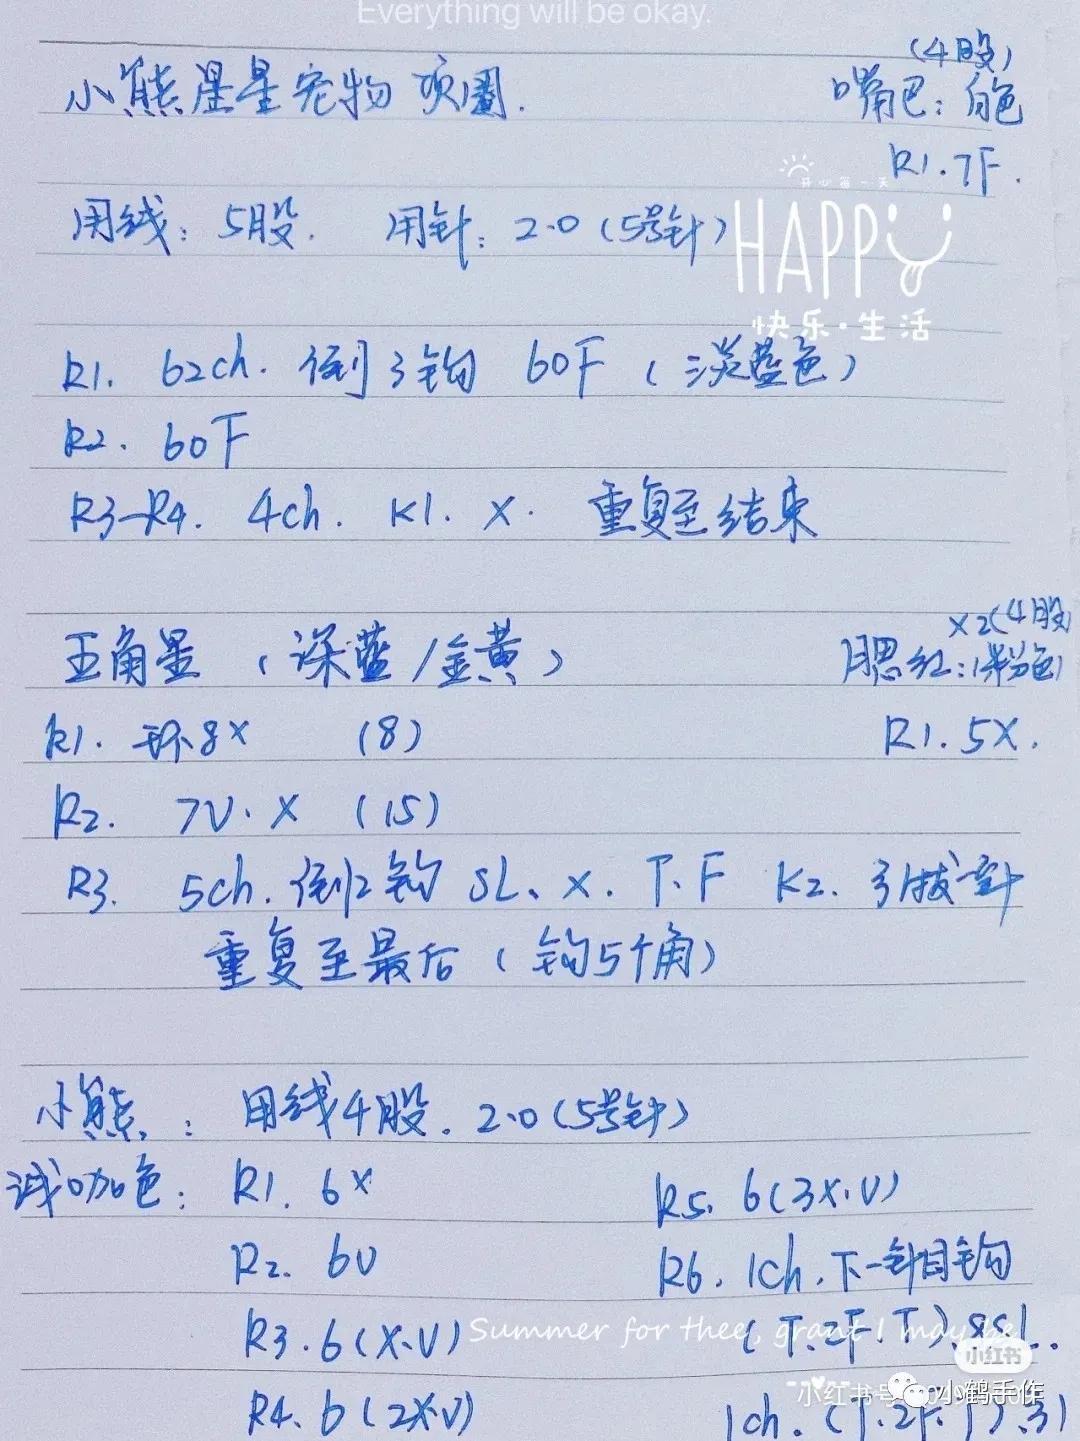 Everything will be okay.
小熊星星宠物项圈.
(4股)
嘴巴：白色
R1.7F.
开心每一天
HAPPY
快乐·生活
用线：5股. 用针：2.0（5号针）
R1. 62ch. 倒3钩 60F（淡蓝色）
R2. 60F
R3-R4. 4ch. K1. X. 重复至结束
五角星（深蓝/金黄）
X2(4股)
腮红：(粉色)
R1. 环8X (8)
R1. 5X.
R2. 7V. X (15)
R3. 5ch. 倒2钩 SL、X. T、F K2. 引拔针
重复至最后（钩5个角）
小熊：用线4股. 2.0(5号针)
浅咖色：R1. 6X
R5. 6(3X.V)
R2. 6V
R6. 1ch. 下一针目钩
R3. 6(X.V)
(T.2F.T)、8SL.
Summer for thee, grant I may be
小红书
R4. 6(2X.V)
1ch. (T.2F.T)、引
小红书号
小鹤手作